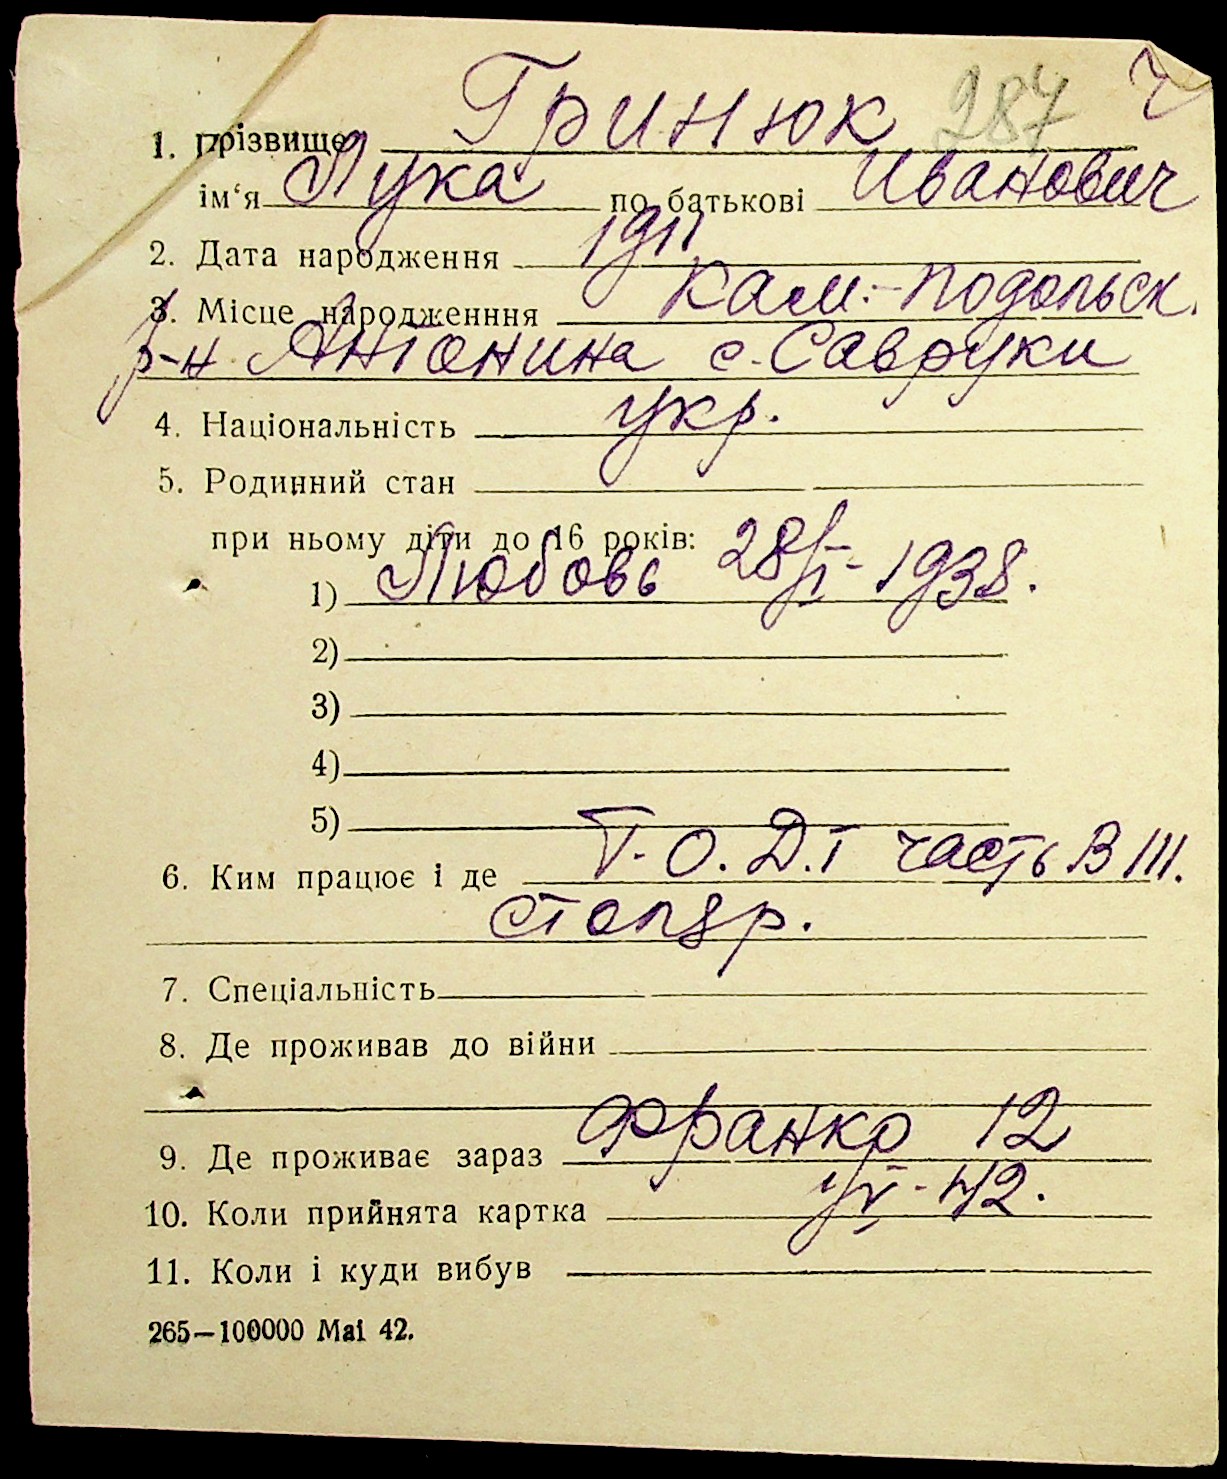 287 ч
1. Прізвище Гринюк
ім‘я Лука по батькові Иванович
2. Дата народження 1911
3. Місце народженння Кам.-Подольск.
р-н Антонина с. Савруки
4. Національність укр.
5. Родинний стан
при ньому діти до 16 років:
1) Любовь 28/ - 1938.
2)
3)
4)
5)
6. Ким працює і де Т. О. Д. Т часть В III.
столяр.
7. Спеціальність
8. Де проживав до війни
9. Де проживає зараз Франко 12
10. Коли прийнята картка -42.
11. Коли і куди вибув
265—100000 Mai 42.